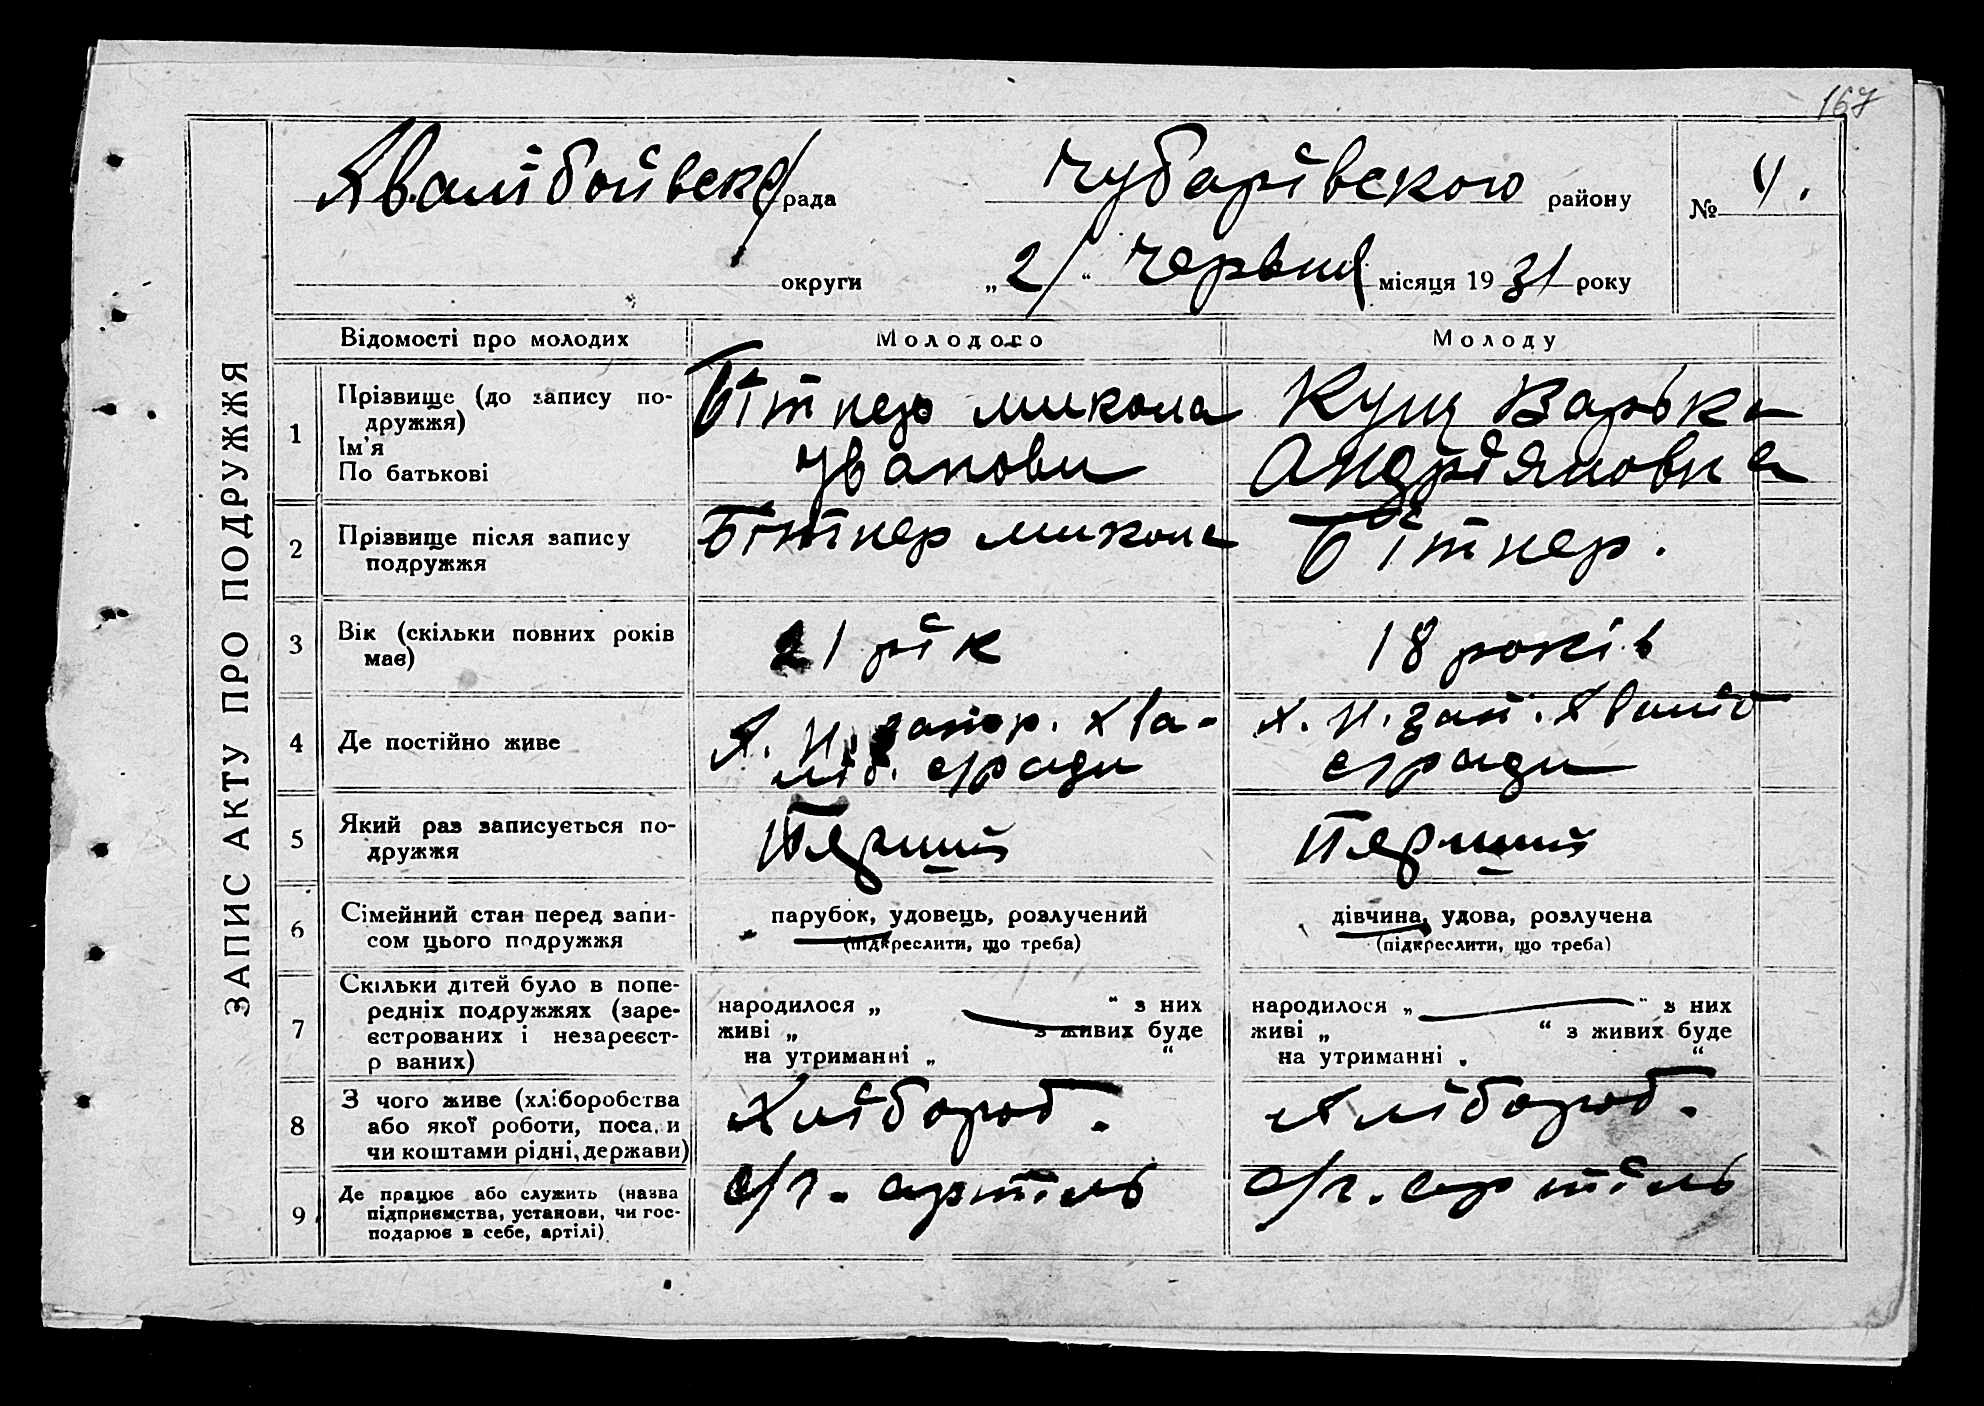 167
Хвалібоївська рада Чубарівского району № 4.
округи „21“ червня місяця 1931 року
ЗАПИС АКТУ ПРО ПОДРУЖЖЯ
Відомості про молодих Молодого Молоду
1 Прізвище (до запису по-
дружжя)
Ім'я
По батькові
Бітнер микола
Іванови
Кущ Варька
Андріяновна
2 Прізвище після запису
подружжя
Бітнер микола
Бітнер.
3 Вік (скільки повних років
має)
21 рік
18 років
4 Де постійно живе
Х. Н. запор. Хва-
ліб. с/ради
Х. Н. зап. Хваліб
с/ради
5 Який раз записується по-
дружжя
Перший
Перший
6 Сімейний стан перед запи-
сом цього подружжя
парубок, удовець, розлучений
(підкреслити, що треба)
дівчина, удова, розлучена
(підкреслити, що треба)
7 Скільки дітей було в попе-
редніх подружжях (заре-
єстрованих і незареєст-
р ваних)
народилося „ “ з них
живі „ “ з живих буде
на утриманні „ “
народилося „ “ з них
живі „ “ з живих буде
на утриманні „ “
8 З чого живе (хліборобства
або якої роботи, поса, и
чи коштами рідні, держави)
Хлібороб.
Хлібороб.
9 Де працює або служить (назва
підприємства, установи, чи гос-
подарює в себе, артілі)
с/г. артіль
с/г. артіль